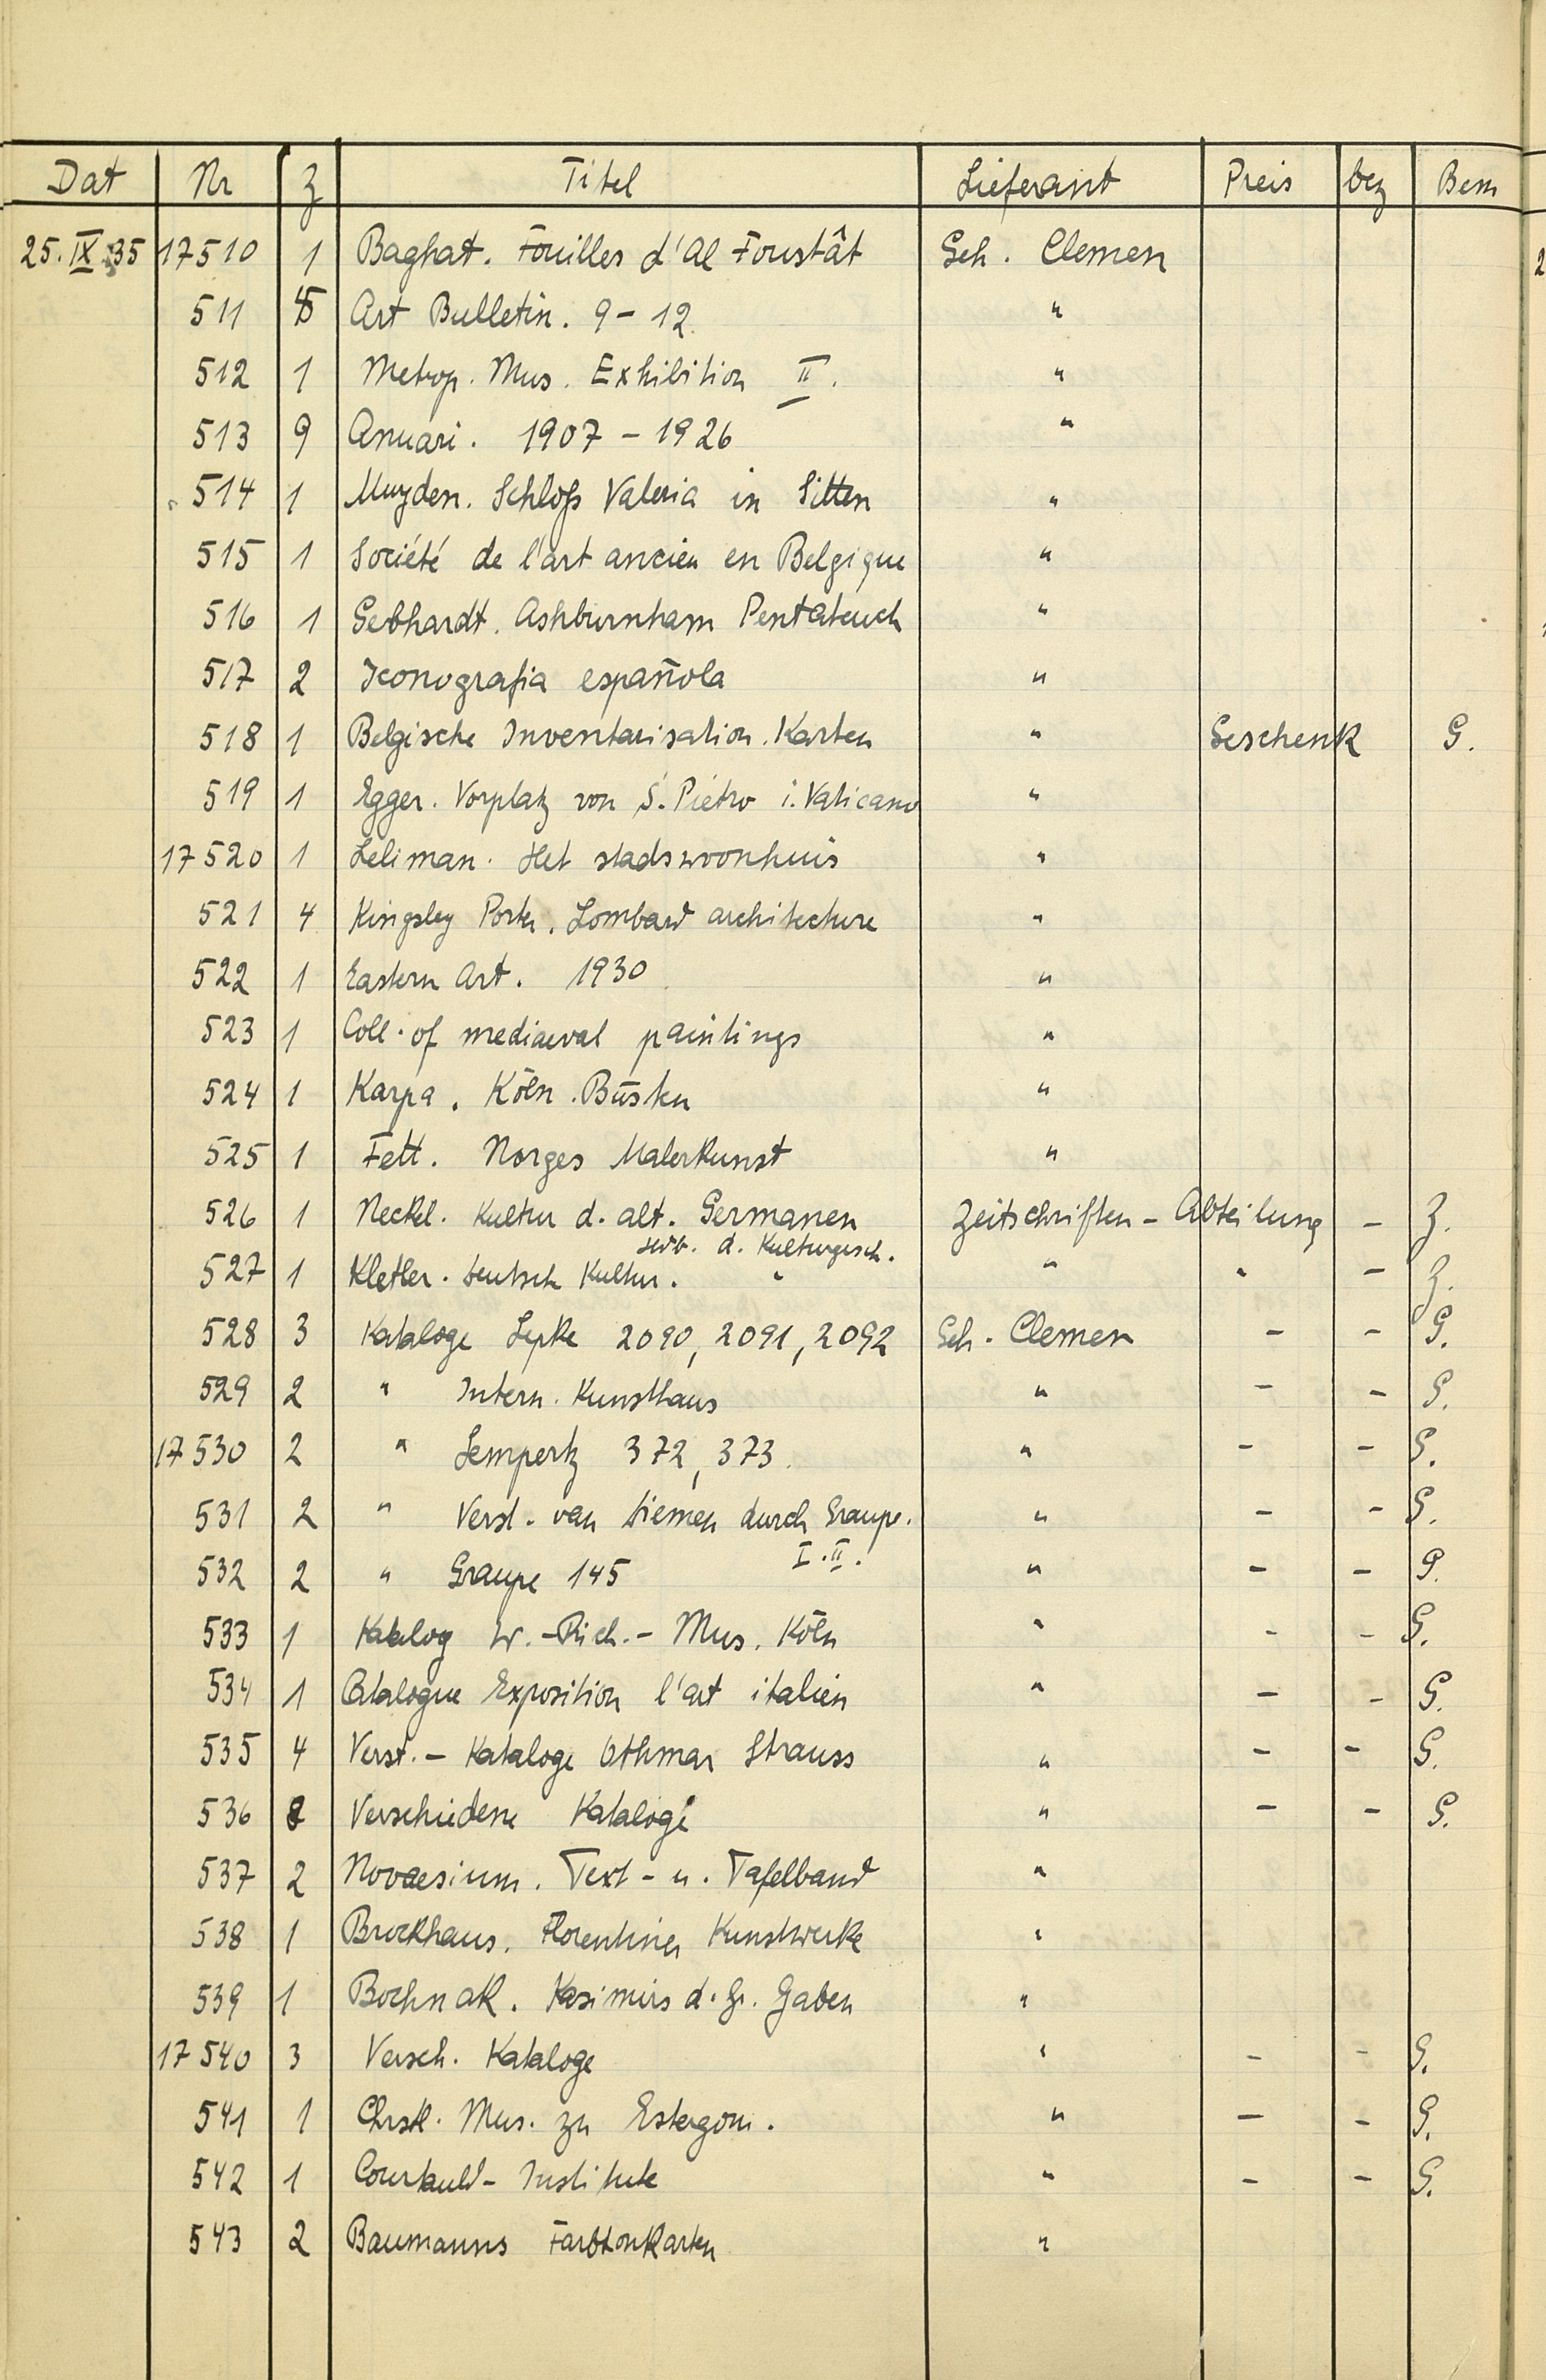 Dat Nr Z Titel Lieferant Preis bez Bem
25.IX.35 17510 1 Baghat. Fouilles d'Al Foustât Geh. Clemen
511 Art Bulletin. 9-12. "
512 1 Metrop. Mus. Exhibition II. "
513 9 Anuari. 1907 - 1926 "
514 1 Muyden. Schloß Valeria in Sitten "
515 1 Société de l'art ancien en Belgique "
516 1 Gebhardt. Ashburnham Pentateuch "
517 2 Iconografia española "
518 1 Belgische Inventarisation. Karten " Geschenk G.
519 1 Egger. Vorplatz von S. Pietro i. Vaticano "
17520 1 Leliman. Het stadswoonhuis "
521 4 Kingsley Porter. Lombard architecture "
522 1 Eastern Art. 1930 "
523 1 Coll. of mediaeval paintings "
524 1 Karpa. Köln. Büsten "
525 1 Fett. Norges Malerkunst "
526 1 Neckel. Kultur d. alt. Germanen Zeitschriften-Abteilung - Z.
Hdb. d. Kulturgesch.
527 1 Kletler. Deutsch Kultur. " " " - Z.
528 3 Kataloge Lepke 2090, 2091, 2092 Geh. Clemen - - G.
529 2 " Intern. Kunsthaus " - - G.
17530 2 " Lempertz 372, 373. " - - G.
531 2 " Verst. van Diemen durch Graupe. " - - G.
I. II.
532 2 " Graupe 145 " - - G.
533 1 Katalog W.-Rich.- Mus. Köln " - - G.
534 1 Catalogue Exposition l'art italien " - - G.
535 4 Verst.- Kataloge Othmar Strauss " - - G.
536 8 Verschiedene Kataloge " - - G.
537 2 Novaesium. Text- u. Tafelband "
538 1 Brockhaus. Florentiner Kunstwerke "
539 1 Bochnak. Kasimirs d. Gr. Gaben "
17540 3 Versch. Kataloge " - - G.
541 1 Chrstl. Mus. zu Estergom. " - - G.
542 1 Courtauld- Institute " - - G.
543 2 Baumanns Farbtonkarten "